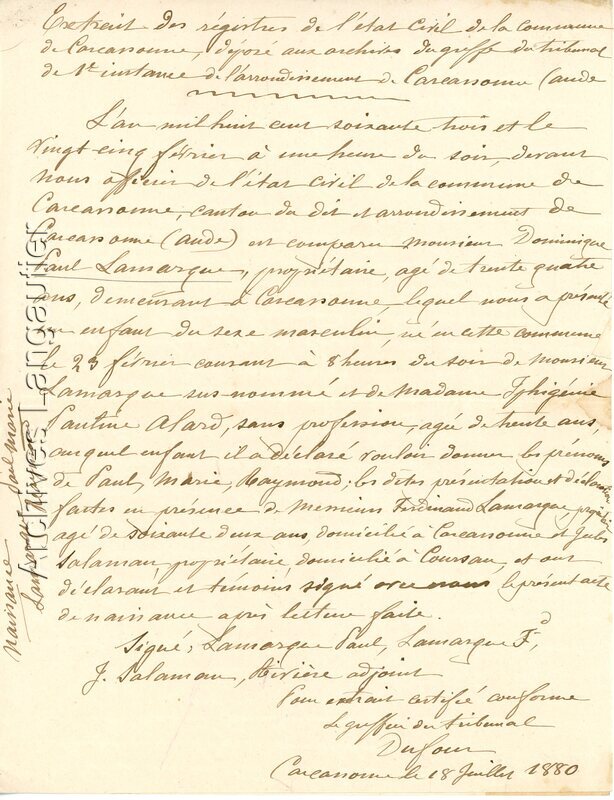 Extrait des régistres de l'état civil de la commune
de Carcassonne, déposé aux archives du greffe du tribunal
de 1re instance de l'arrondissement de Carcassonne (aude
L'an mil huit cent soixante trois et le
vingt cinq février à une heure du soir, devant
nous officier de l'état civil de la commune de
Carcassonne, canton du dit et arrondissement de
Carcassonne (aude) est comparu monsieur Dominique
Paul Lamarque, propriétaire, agé de trente quatre
ans, demeurant à Carcassonne lequel nous a présenté
un enfant du sexe masculin, né en cette commune
le 23 février courant à 8 heures du soir de monsieur
Lamarque sus nommé et de madame Iphigénie
Pauline Alard, sans profession, agée de trente ans,
auquel enfant il a déclaré vouloir donner les prénoms
de Paul, Marie, Raymond; les dites présentation et déclaration
faites en présence de messieurs Ferdinand Lamarque
agé de soixante deux ans, domicilié à Carcassonne et Jules
Salaman, propriétaire, domicilié à Coursan, et ont
déclarant et témoins signé avec nous le présent acte
de naissance après lecture faite.
Signé, Lamarque Paul, Lamarque Fd,
J. Salaman, Rivière adjoint
Pour extrait certifié conforme
Le greffier du tribunal
Dufour
Carcassonne le 18 Juillet 1880
naissance
Lamarque Paul Marie
Archives Langautier